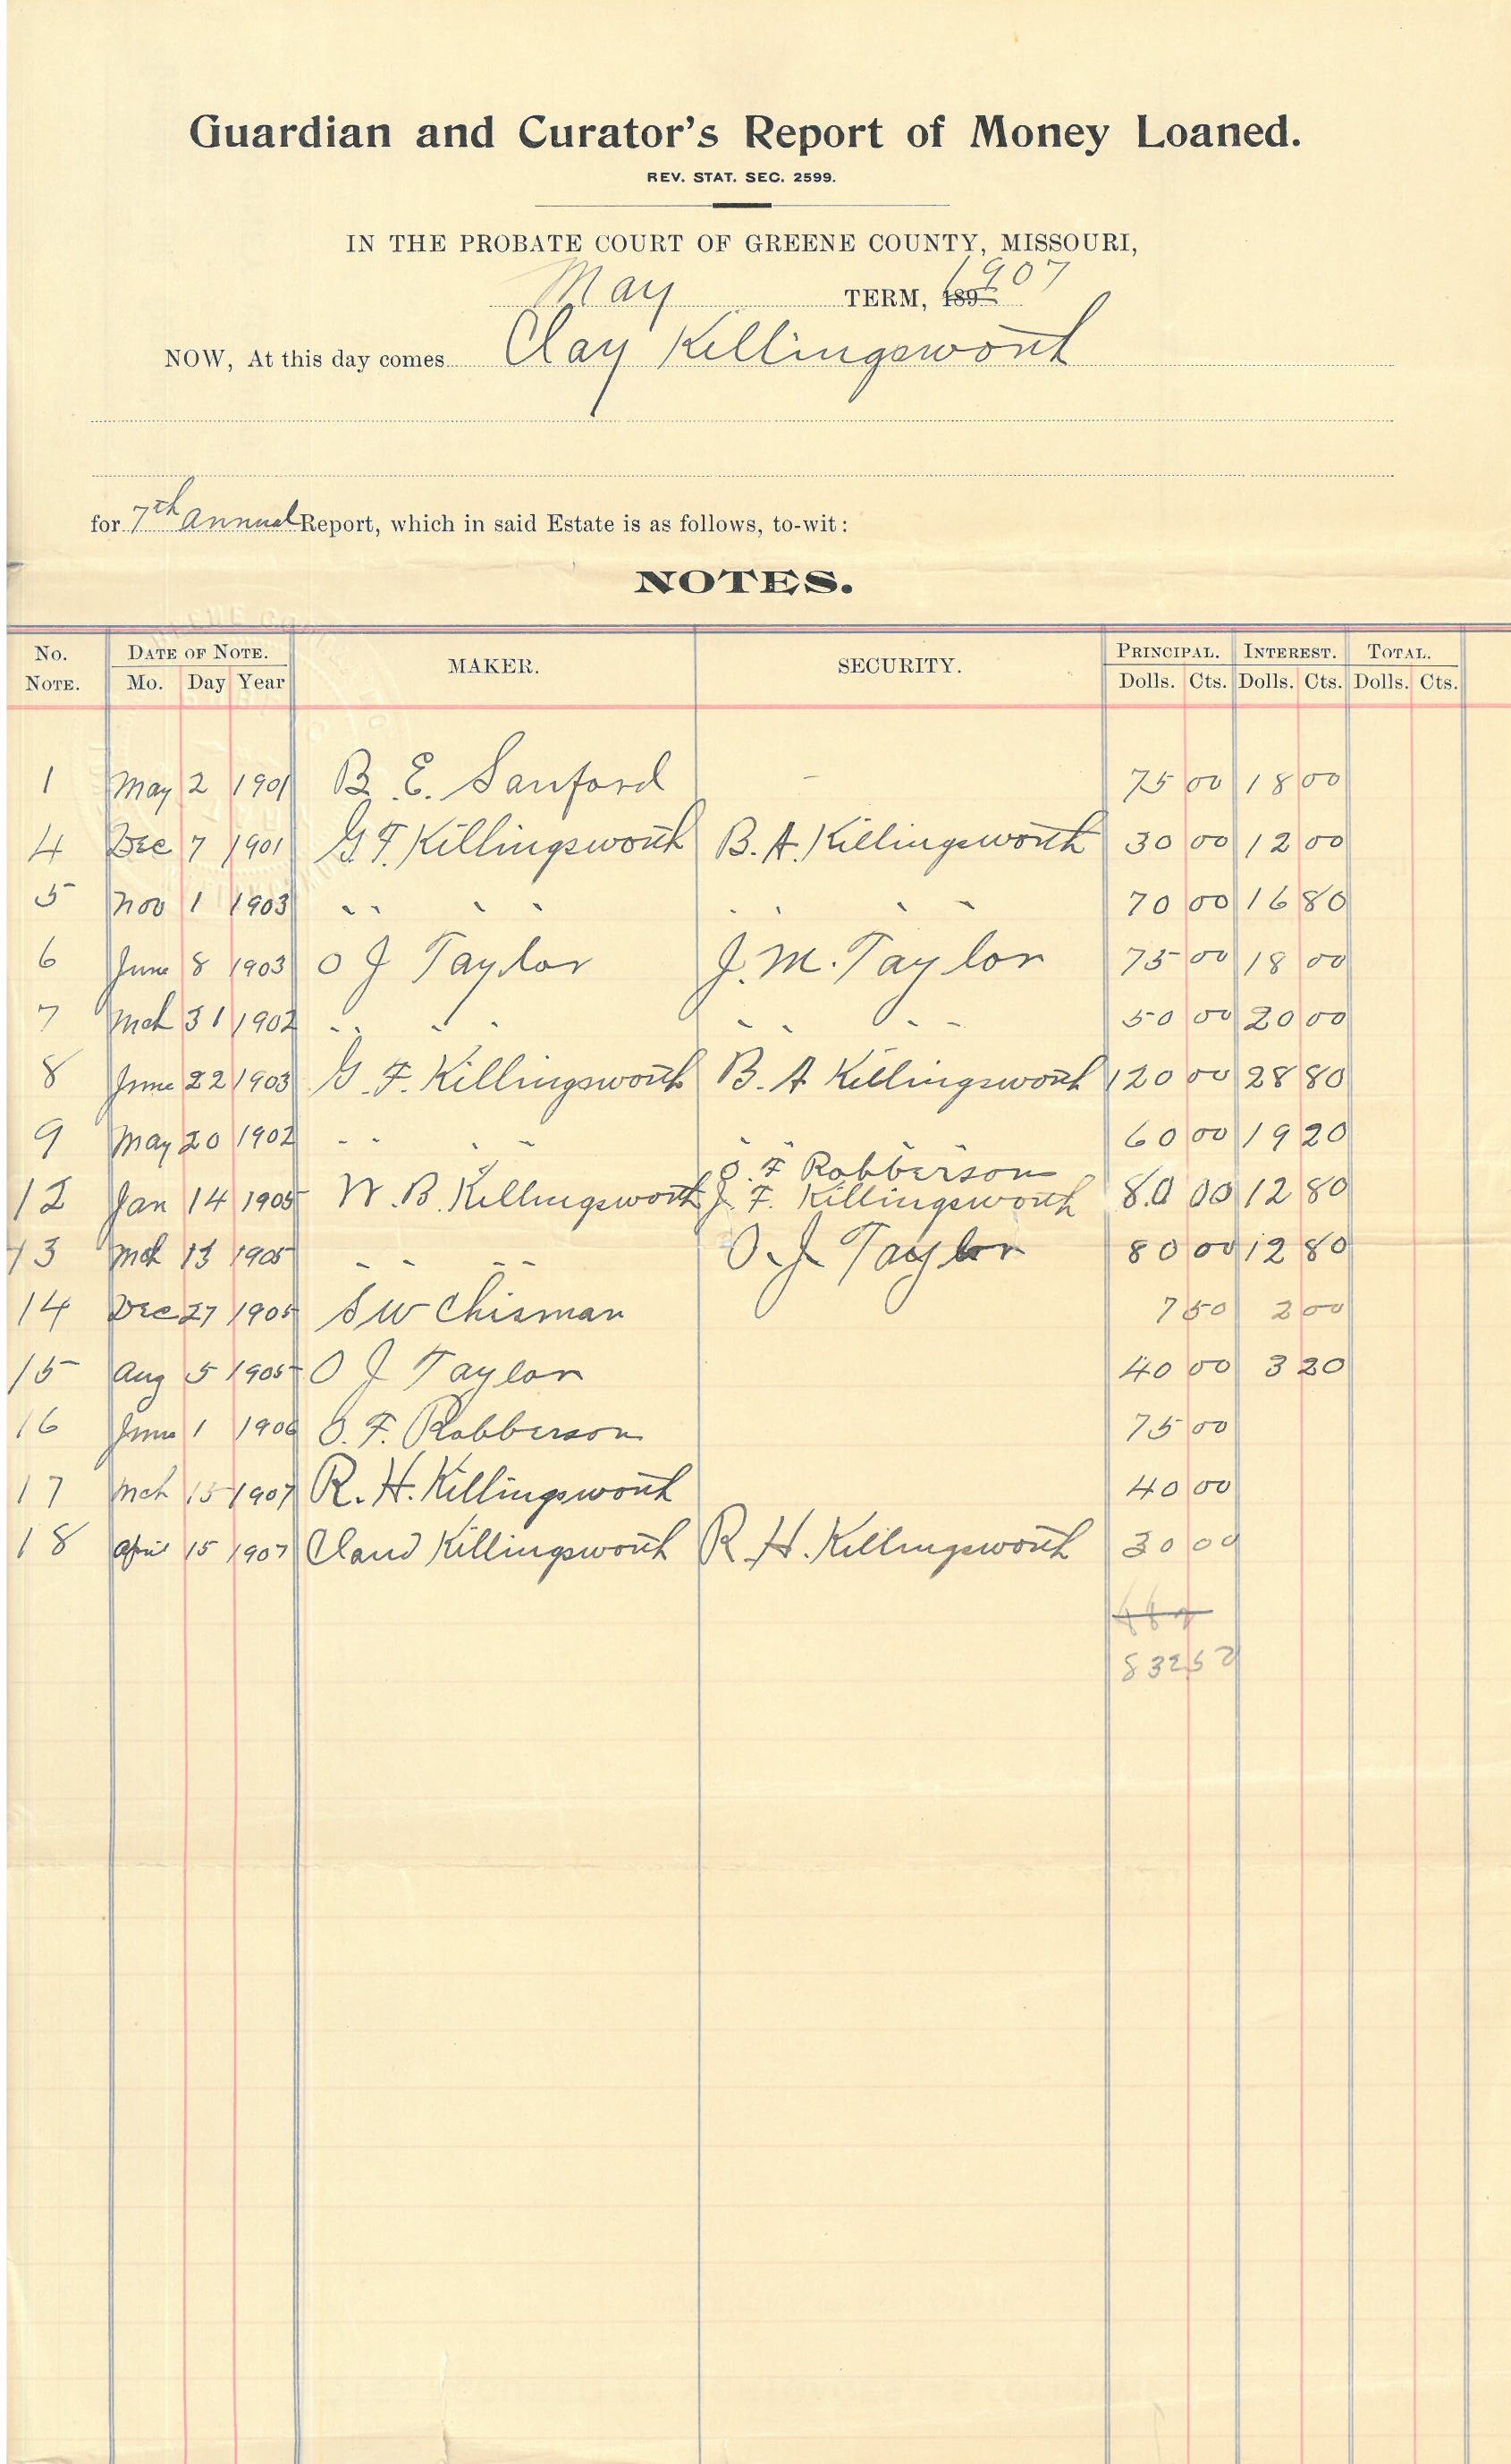 Guardian and Curator's Report of Money Loaned.
REV. STAT. SEC. 2599.
IN THE PROBATE COURT OF GREENE COUNTY, MISSOURI,
May TERM, 189 1907
NOW, At this day comes Clay Killingsworth
for 7th annual Report, which in said Estate is as follows, to-wit:
NOTES.
No. NOTE. DATE OF NOTE. Mo. Day Year MAKER. SECURITY. PRINCIPAL. Dolls. Cts. INTEREST. Dolls. Cts. TOTAL. Dolls. Cts.
1 May 2 1901 B. E. Sanford - 75 00 18 00
4 Dec 7 1901 G F. Killingsworth B. A. Killingsworth 30 00 12 00
5 Nov 1 1903 " " " " " " " " 70 00 16 80
6 June 8 1903 O J Taylor J. M. Taylor 75 00 18 00
7 Mch 31 1902 " " " " " " " " 50 00 20 00
8 June 22 1903 G. F. Killingsworth B. A Killingsworth 120 00 28 80
9 May 20 1902 " " " " " " " " 60 00 19 20
O. F Robberson
12 Jan 14 1905 W. B. Killingsworth J. F. Killingsworth 80 00 12 80
13 Mch 13 1905 " " " " O. J Taylor 80 00 12 80
14 Dec 27 1905 S W Chisman 7 50 2 00
15 Aug 5 1905 O J Taylor 40 00 3 20
16 June 1 1906 O. F. Robberson 75 00
17 Mch 15 1907 R. H. Killingsworth 40 00
18 April 15 1907 Claud Killingsworth R. H. Killingsworth 30 00
832 50